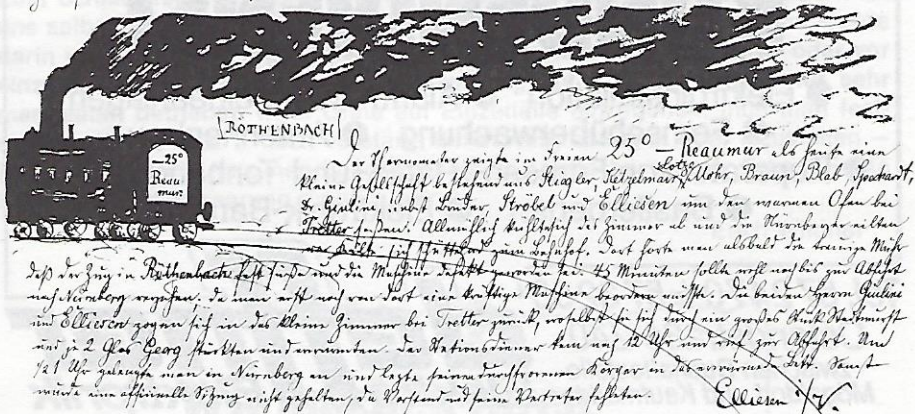 RÖTHENBACH
– 25°
Reau
mur.
Der Thermometer zeigte im Freien 25° – Reaumur als heute eine
kleine Gesellschaft bestehend aus Mohr, Braun, Blab
Dr. Giulini, nebst Bruder, Strobel und Elliesen um den warmen Ofen bei
Tretter saßen. Allmählich kühlte sich das Zimmer ab und die Nürnberger eilten
zum Bahnhof. Dort hörte man alsbald die traurige Mähr
daß der Zug in Röthenbach fest säße und die Maschine defekt geworden sei. 45 Minuten sollte wohl noch bis zur Abfahrt
nach Nürnberg vergehen, da man erst noch von dort eine kräftige Maschine beordern mußte. Die beiden Herrn Giulini
und Elliesen zogen sich in das kleine Zimmer bei Tretter zurück, woselbst sie sich durch ein großes Stück Stadtwurst
und je 2 Glas Georg stärkten und erwärmten. Der Stationsdiener kam nach 12 Uhr und rief zur Abfahrt. Um
½1 Uhr gelangte man in Nürnberg an und legte seinen durchfrorenen Körper in das erwärmende Bett. Sonst
wurde eine offizielle Sitzung nicht gehalten, da Vorstand und sein Vertreter fehlten.
Elliesen